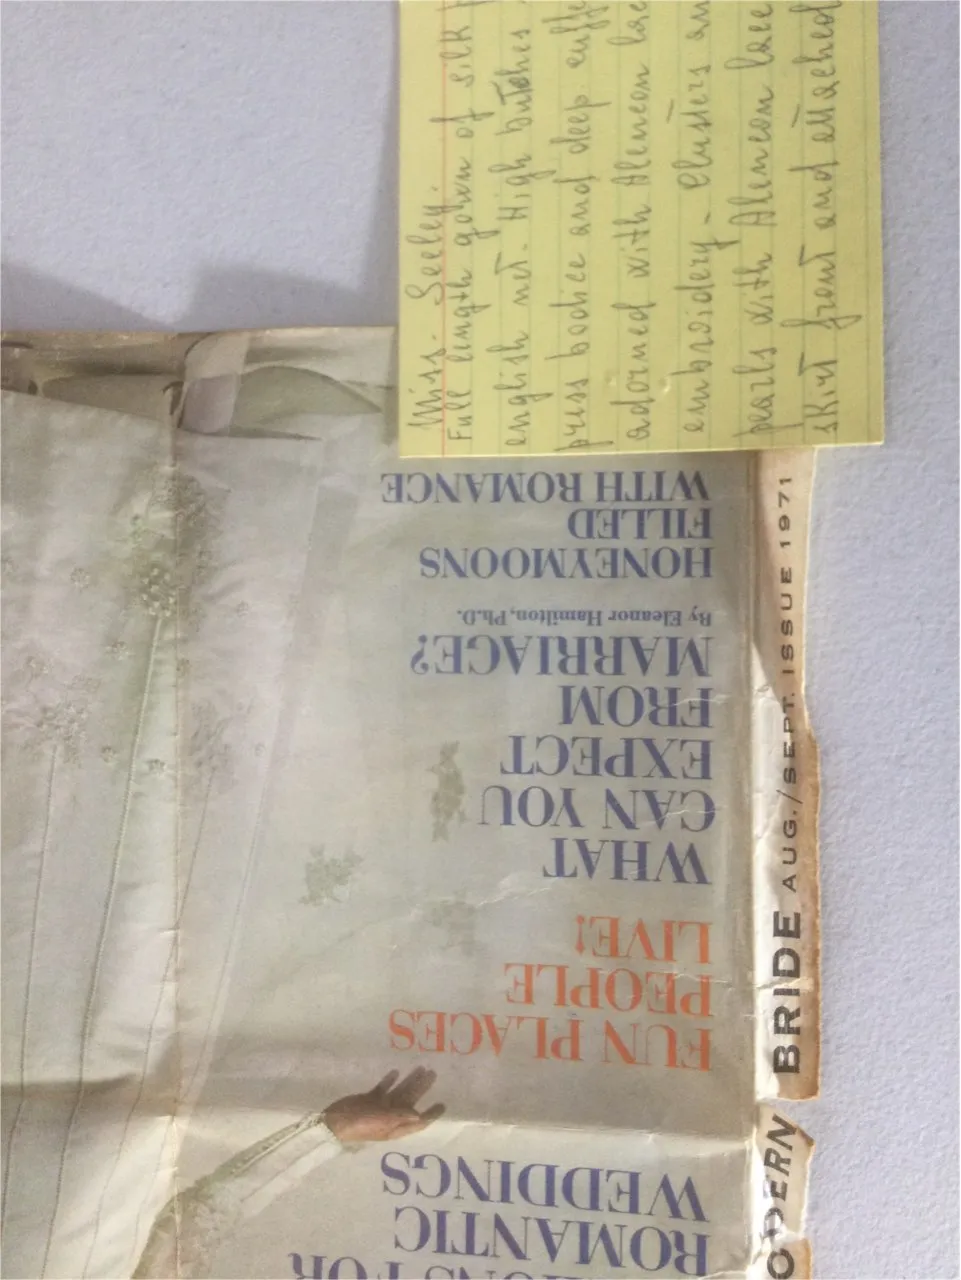 Miss. Seeley.
Full length gown of silk
english net. High
bodice and deep cuffs
adorned with Alencon lace
embroidery - clusters
pearls with Alencon lace
skirt front and attached
FOR
ROMANTIC
WEDDINGS
FUN PLACES
PEOPLE
LIVE!
WHAT
CAN YOU
EXPECT
FROM
MARRIAGE?
By Eleanor Hamilton, Ph.D.
HONEYMOONS
FILLED
WITH ROMANCE
ODERN BRIDE AUG./SEPT. ISSUE 1971